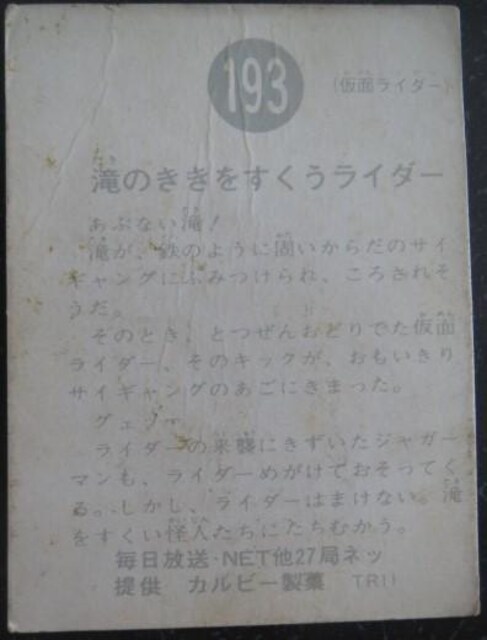 193
(仮面ライダー)
たき
滝のききをすくうライダー
あぶない滝!
滝が、鉄のように固いからだのサイ
ギャングにふみつけられ、ころされそ
うだ。
そのとき、とつぜんおどりでた仮面
ライダー、そのキックが、おもいきり
サイギャングのあごにきまった。
グェッー
ライダーの来襲にきずいたジャガー
マンも、ライダーめがけておそってく
る。しかし、ライダーはまけない。滝
をすくい怪人たちにたちむかう。
毎日放送・NET他27局ネッ
提供 カルビー製菓 TR11